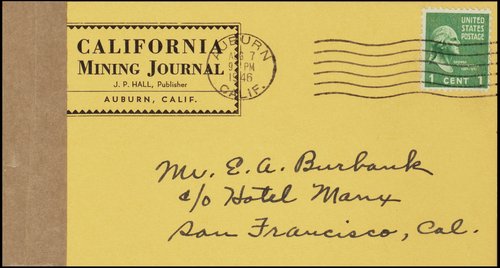 CALIFORNIA
MINING JOURNAL
J. P. HALL, Publisher
AUBURN, CALIF.
AUBURN
AUG 7
PM
1946
CALIF.
UNITED STATES
POSTAGE
1 CENT 1
Mr. E. A. Burbank
c/o Hotel Manx
San Francisco, Cal.